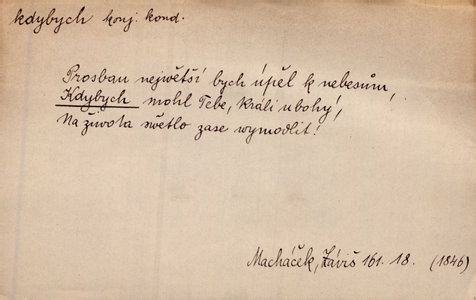 kdybych konj. kond.
Prosbau největší bych úpěl k nebesům,
Kdybych mohl Tebe, králi ubohý,
Na života swětlo zase wymodlit!
Macháček, Záviš 161. 18. (1846)